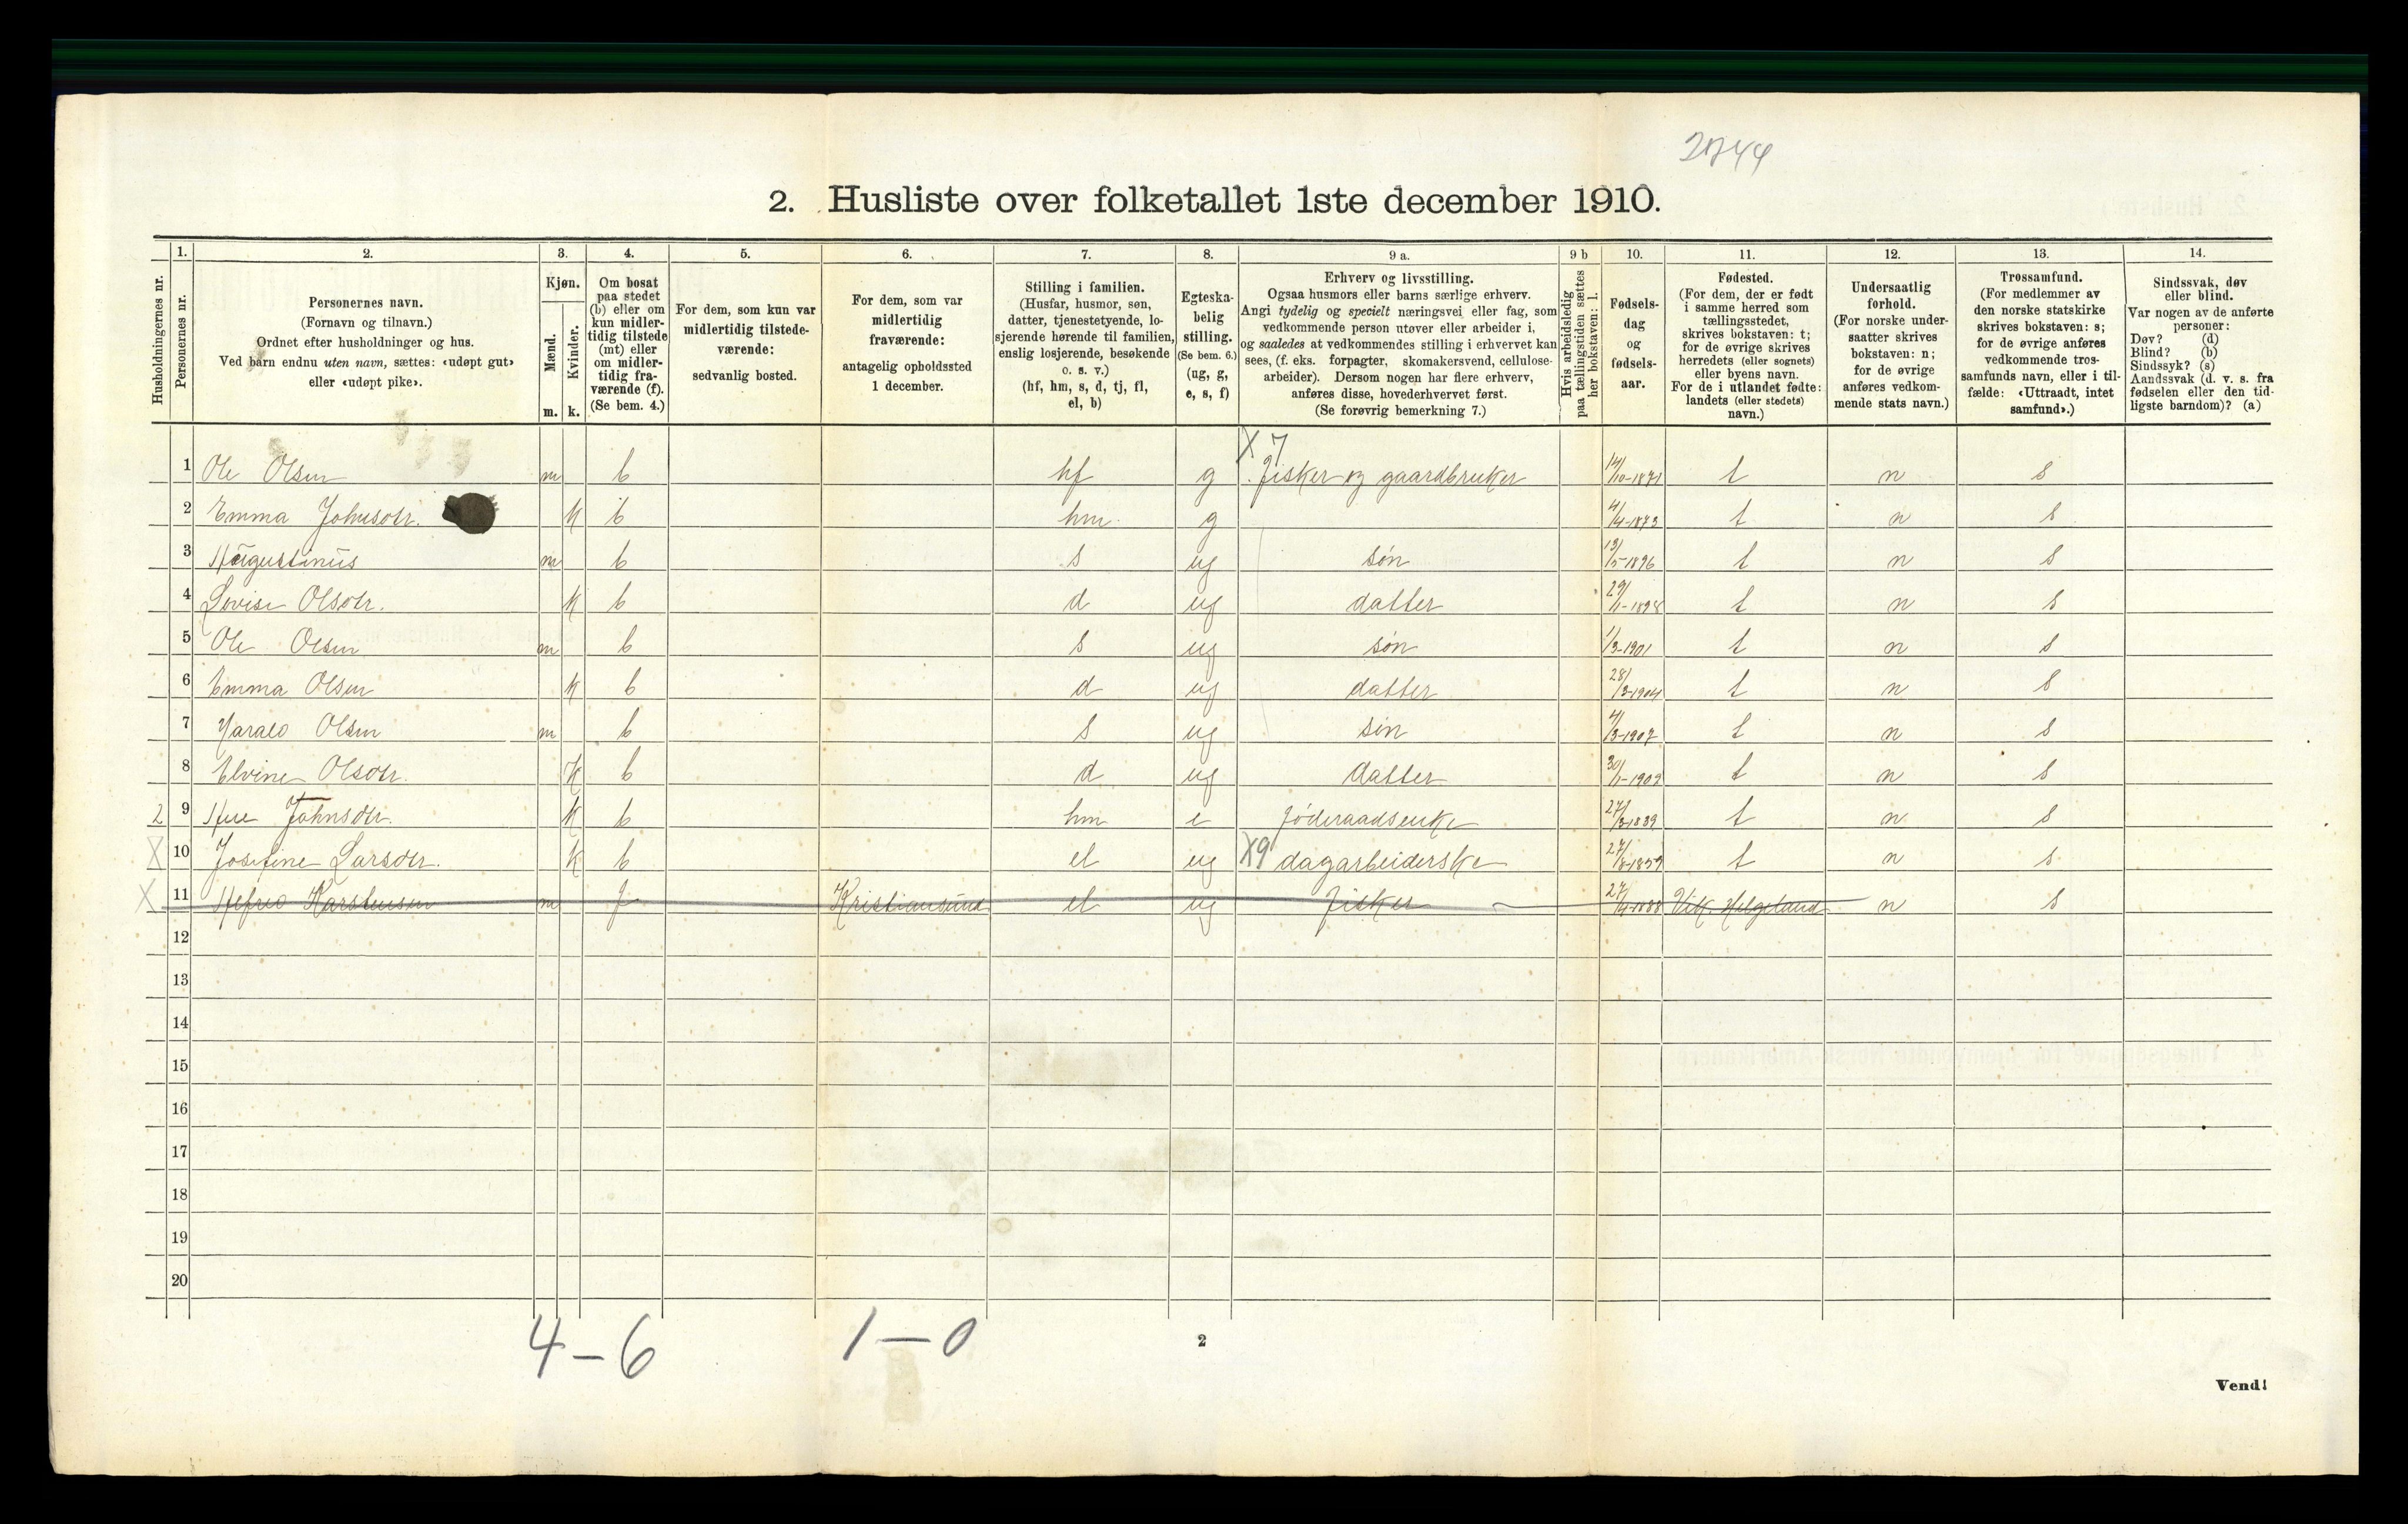 2744
2. Husliste over folketallet 1ste december 1910.
Husholdningernes nr.
1. Personernes nr.
2. Personernes navn.
(Fornavn og tilnavn.)
Ordnet efter husholdninger og hus.
Ved barn endnu uten navn, sættes: «udøpt gut»
eller «udøpt pike».
3. Kjøn.
Mænd. m.
Kvinder. k.
4. Om bosat
paa stedet
(b) eller om
kun midler-
tidig tilstede
(mt) eller
om midler-
tidig fra-
værende (f).
(Se bem. 4.)
5. For dem, som kun var
midlertidig tilstede-
værende:
sedvanlig bosted.
6. For dem, som var
midlertidig
fraværende:
antagelig opholdssted
1 december.
7. Stilling i familien.
(Husfar, husmor, søn,
datter, tjenestetyende, lo-
sjerende hørende til familien,
enslig losjerende, besøkende
o. s. v.)
(hf, hm, s, d, tj, fl,
el, b)
8. Egteska-
belig
stilling.
(Se bem. 6.)
(ug, g,
e, s, f)
9 a. Erhverv og livsstilling.
Ogsaa husmors eller barns særlige erhverv.
Angi tydelig og specielt næringsvei eller fag, som
vedkommende person utøver eller arbeider i,
og saaledes at vedkommendes stilling i erhvervet kan
sees, (f. eks. forpagter, skomakersvend, cellulose-
arbeider). Dersom nogen har flere erhverv,
anføres disse, hovederhvervet først.
(Se forøvrig bemerkning 7.)
9 b Hvis arbeidsledig
paa tællingstiden sættes
her bokstaven: l.
10. Fødsels-
dag
og
fødsels-
aar.
11. Fødested.
(For dem, der er født
i samme herred som
tællingsstedet,
skrives bokstaven: t;
for de øvrige skrives
herredets (eller sognets)
eller byens navn.
For de i utlandet fødte:
landets (eller stedets)
navn.)
12. Undersaatlig
forhold.
(For norske under-
saatter skrives
bokstaven: n;
for de øvrige
anføres vedkom-
mende stats navn.)
13. Trossamfund.
(For medlemmer av
den norske statskirke
skrives bokstaven: s;
for de øvrige anføres
vedkommende tros-
samfunds navn, eller i til-
fælde: «Uttraadt, intet
samfund».)
14. Sindssvak, døv
eller blind.
Var nogen av de anførte
personer:
Døv? (d)
Blind? (b)
Sindssyk? (s)
Aandssvak (d. v. s. fra
fødselen eller den tid-
ligste barndom)? (a)
X 7
1 Ole Olsen m b hf g fisker og gaardbruker 14/10-1871 t n s
2 Emma Johnsdtr. k b hm g 4/4-1873 t n s
3 Augustinus m b s ug søn 13/5-1896 t n s
4 Lovise Olsdtr. k b d ug datter 29/11-1898 t n s
5 Ole Olsen m b s ug søn 1/3-1901 t n s
6 Emma Olsen k b d ug datter 28/3-1904 t n s
7 Harald Olsen m b s ug søn 4/3-1907 t n s
8 Elvine Olsdtr. k b d ug datter 30/1-1909 t n s
2 9 Ane Johnsdtr. k b hm e føderaadsenke 27/3-1839 t n s
X 10 Josefine Larsdtr. k b el ug X9 dagarbeiderske 27/8-1859 t n s
X 11 Alfred Karstensen m f Kristiansund el ug fisker 27/4-1888 Vik. Helgeland n s
12
13
14
15
16
17
18
19
20
4-6 1-0
2
Vend!